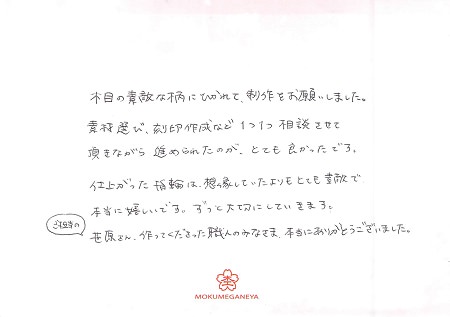 木目の素敵な柄にひかれて、制作をお願いしました。
素材選び、刻印作成など1つ1つ相談させて
頂きながら 進められたのが、とても良かったです。
仕上がった指輪は、想像していたよりもとても素敵で
本当に嬉しいです。ずっと大切にしていきます。
ご担当の
笹原さん、作ってくださった職人のみなさま、本当にありがとうございました。
MOKUMEGANEYA